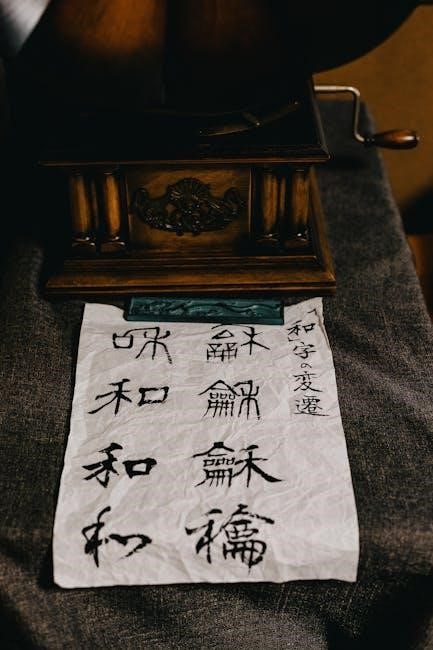 「和」字の変遷
龢龢龢龢
咊和和和